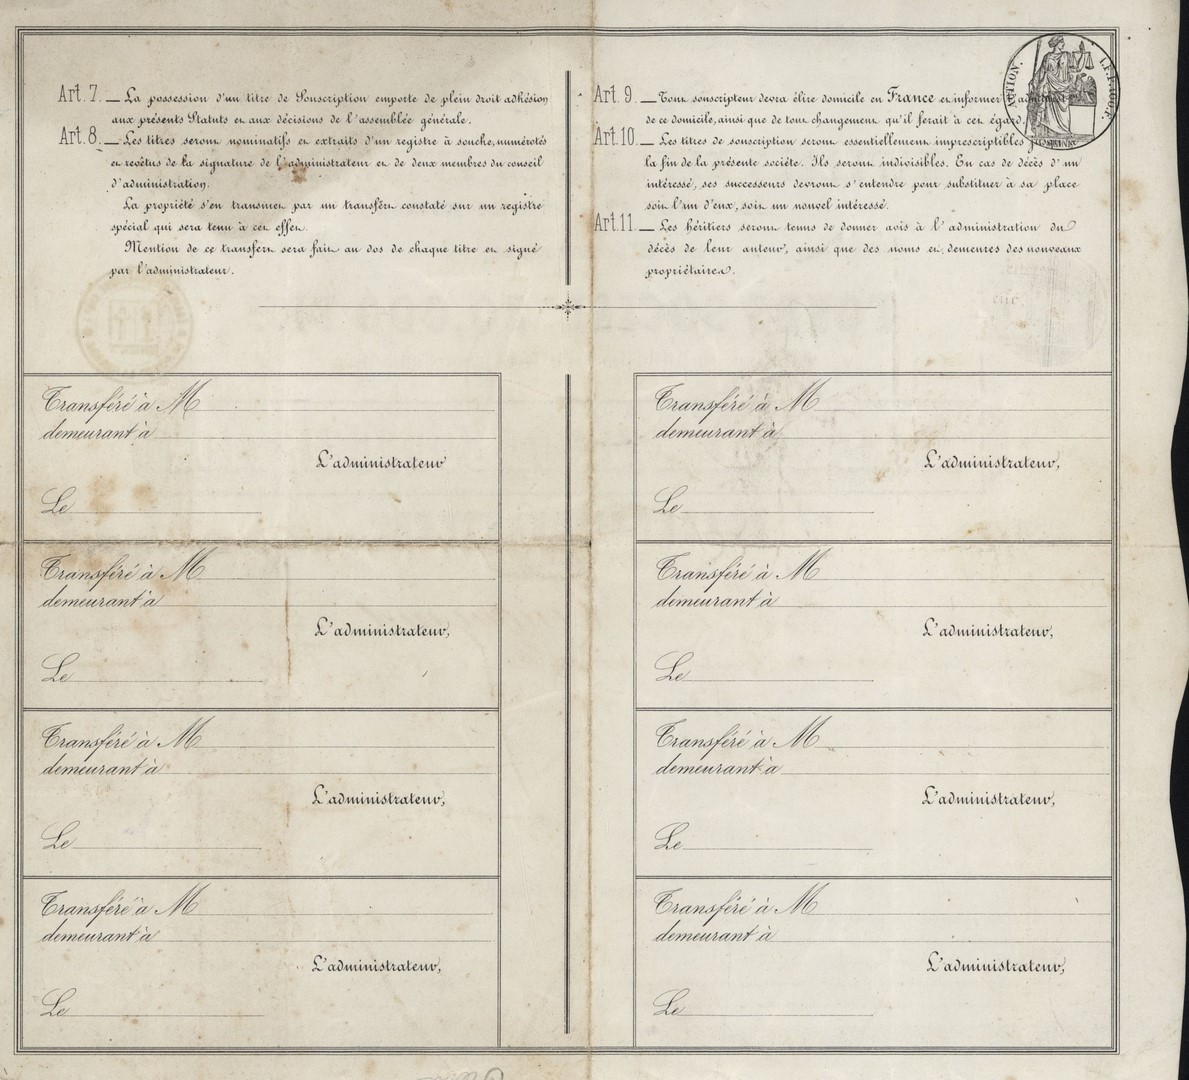 Art. 7. — La possession d'un titre de Souscription emporte de plein droit adhésion
aux présents Statuts et aux décisions de l'assemblée générale.
Art. 8. — Les titres seront nominatifs et extraits d'un registre à souche, numérotés
et revêtus de la signature de l'administrateur et de deux membres du conseil
d'administration.
La propriété s'en transmet par un transfert constaté sur un registre
spécial qui sera tenu à cet effet.
Mention de ce transfert sera fait au dos de chaque titre et signé
par l'administrateur.
Art. 9. — Tout souscripteur devra élire domicile en France et informer
de ce domicile, ainsi que de tout changement qu'il ferait à cet égard.
Art. 10. — Les titres de souscription seront essentiellement imprescriptibles
la fin de la présente société. Ils seront indivisibles. En cas de décès d'un
intéressé, ses successeurs devront s'entendre pour substituer à sa place
soit l'un d'eux, soit un nouvel intéressé.
Art. 11. — Les héritiers seront tenus de donner avis à l'administration du
décès de leur auteur, ainsi que des noms et demeures des nouveaux
propriétaires.
Transféré à M
demeurant à
L'administrateur
Le
Transféré à M
demeurant à
L'administrateur,
Le
Transféré à M
demeurant à
L'administrateur,
Le
Transféré à M
demeurant à
L'administrateur,
Le
Transféré à M
demeurant à
L'administrateur,
Le
Transféré à M
demeurant à
L'administrateur,
Le
Transféré à M
demeurant à
L'administrateur,
Le
Transféré à M
demeurant à
L'administrateur,
Le